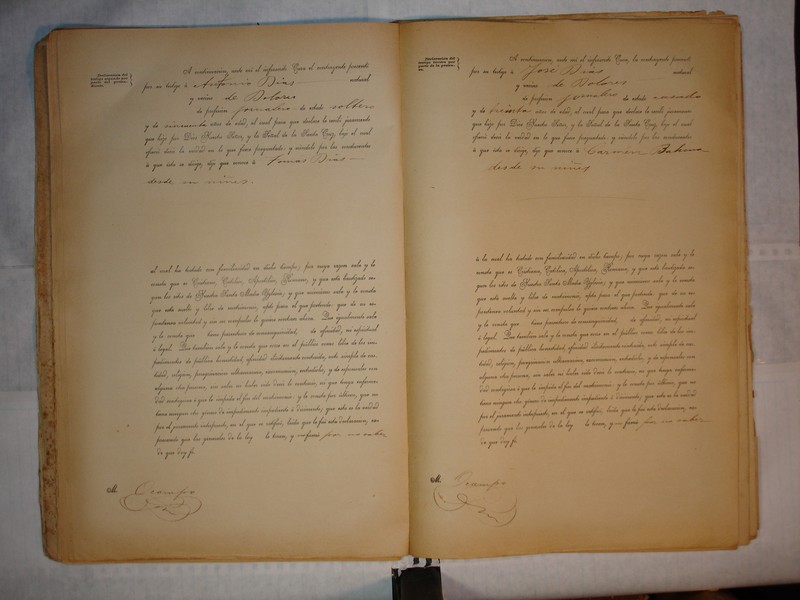 Declaracion del
testigo segundo por
parte del preten-
diente
A continuacion, ante mí el infrascrito Cura el contrayente presentó
por su testigo á Antonio Dias natural
y vecino de Dolores
de profesion jornalero de estado soltero
y de cincuenta años de edad, el cual para que declare le recibí juramento
que hizo por Dios Nuestro Señor, y la Señal de la Santa Cruz, bajo el cual
ofreció decir la verdad en lo que fuere preguntado: y siéndole por los contenidos
á que ésta se dirige, dijo que conoce á Tomas Dias
desde su niñes.
al cual ha tratado con familiaridad en dicho tiempo; por cuya razon sabe y le
consta que es Cristiano, Católico, Apostólico, Romano, y que está bautizado se-
gun los ritos de Nuestra Santa Madre Yglesia; y que asimismo sabe y le consta
que está suelto y libre de matrimonio, apto para el que pretende: que de su es-
pontánea voluntad y sin ser compulso lo quiere contraer ahora. Que igualmente sabe
y le consta que tiene parentesco de consanguinidad, de afinidad, ni espiritual
ó legal. Que tambien sabe y le consta que no es el público como libre de los im-
pedimentos de pública honestidad, afinidad ilícitamente contraida, voto simple de cas-
tidad, religion, peregrinacion ultramarina, excomunion, entredicho, y de esponsales con
alguna otra persona, con cuales no halla està duda le contiene, ni que tenga enferme-
dad contagiosa ó que le impida el fin del matrimonio: y le consta por último, que no
tiene ningun otro género de impedimento impediente ó dirimente; que esta es la verdad
por el juramento interpuesto, en el que se ratificó, leida que le fué esta declaracion, ex-
presando que las generales de la ley le tocan, y no firmó por no saber
de que doy fé.
M. Ocampo
Declaracion del
testigo tercero por
parte de la preten-
sa.
A continuacion, ante mí el infrascrito Cura, la contrayente presentó
por su testigo á José Dias natural
y vecino de Dolores
de profesion jornalero de estado casado
y de treinta años de edad, el cual para que declare le recibí juramento
que hizo por Dios Nuestro Señor, y la Señal de la Santa Cruz, bajo el cual
ofreció decir la verdad en lo que fuere preguntado: y siéndole por los contenidos
á que ésta se dirige, dijo que conoce á Carmen Bahena
desde su niñes
á la cual ha tratado con familiaridad en dicho tiempo; por cuya razon sabe y le
consta que es Cristiana, Católica, Apostólica, Romana, y que está bautizada se-
gun los ritos de Nuestra Santa Madre Yglesia; y que asimismo sabe y le consta
que está suelta y libre de matrimonio, apta para el que pretende: que de su es-
pontánea voluntad y sin ser compulsa lo quiere contraer ahora. Que igualmente sabe
y le consta que tiene parentesco de consanguinidad, de afinidad, ni espiritual
ó legal. Que tambien sabe y le consta que
pedimentos de pública honestidad, afinidad ilícitamente contraida, voto simple de cas-
tidad, religion, peregrinacion ultramarina, excomunion, entredicho, y de esponsales con
alguna otra persona, ni que tenga enferme-
dad contagiosa ó que le impida el fin del matrimonio: y le consta por último, que no
tiene ningun otro género de impedimento impediente ó dirimente; que esta es la verdad
por el juramento interpuesto, en el que se ratificó, leida que le fué esta declaracion, ex-
presando que las generales de la ley le tocan, y no firmó por no saber
de que doy fé.
M. Ocampo